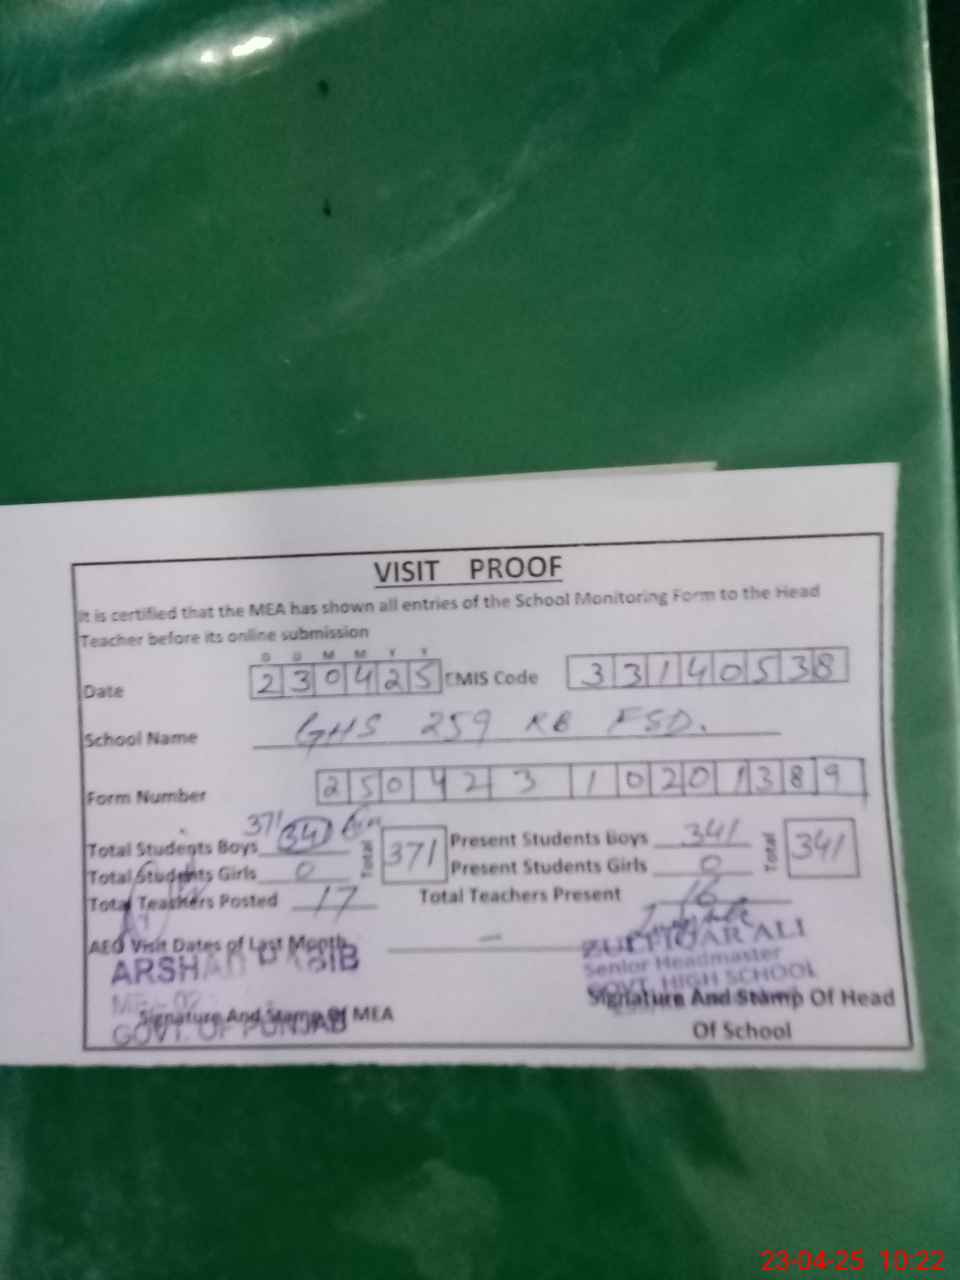 VISIT PROOF
It is certified that the MEA has shown all entries of the School Monitoring Form to the Head
Teacher before its online submission
D D M M Y Y
Date 230425 EMIS Code 33140538
School Name GHS 259 RB FSD.
Form Number 25042310201389
371
Total Students Boys 341 Total 371 Present Students Boys 341 Total 341
Total Students Girls 0 Present Students Girls 0
Total Teachers Posted 17 Total Teachers Present 16
AEO Visit Dates of Last Month —
ARSHAD HABIB
GOVT. OF PUNJAB
Signature And Stamp Of MEA
ZULFIQAR ALI
Senior Headmaster
GOVT. HIGH SCHOOL
Signature And Stamp Of Head
Of School
23-04-25 10:22